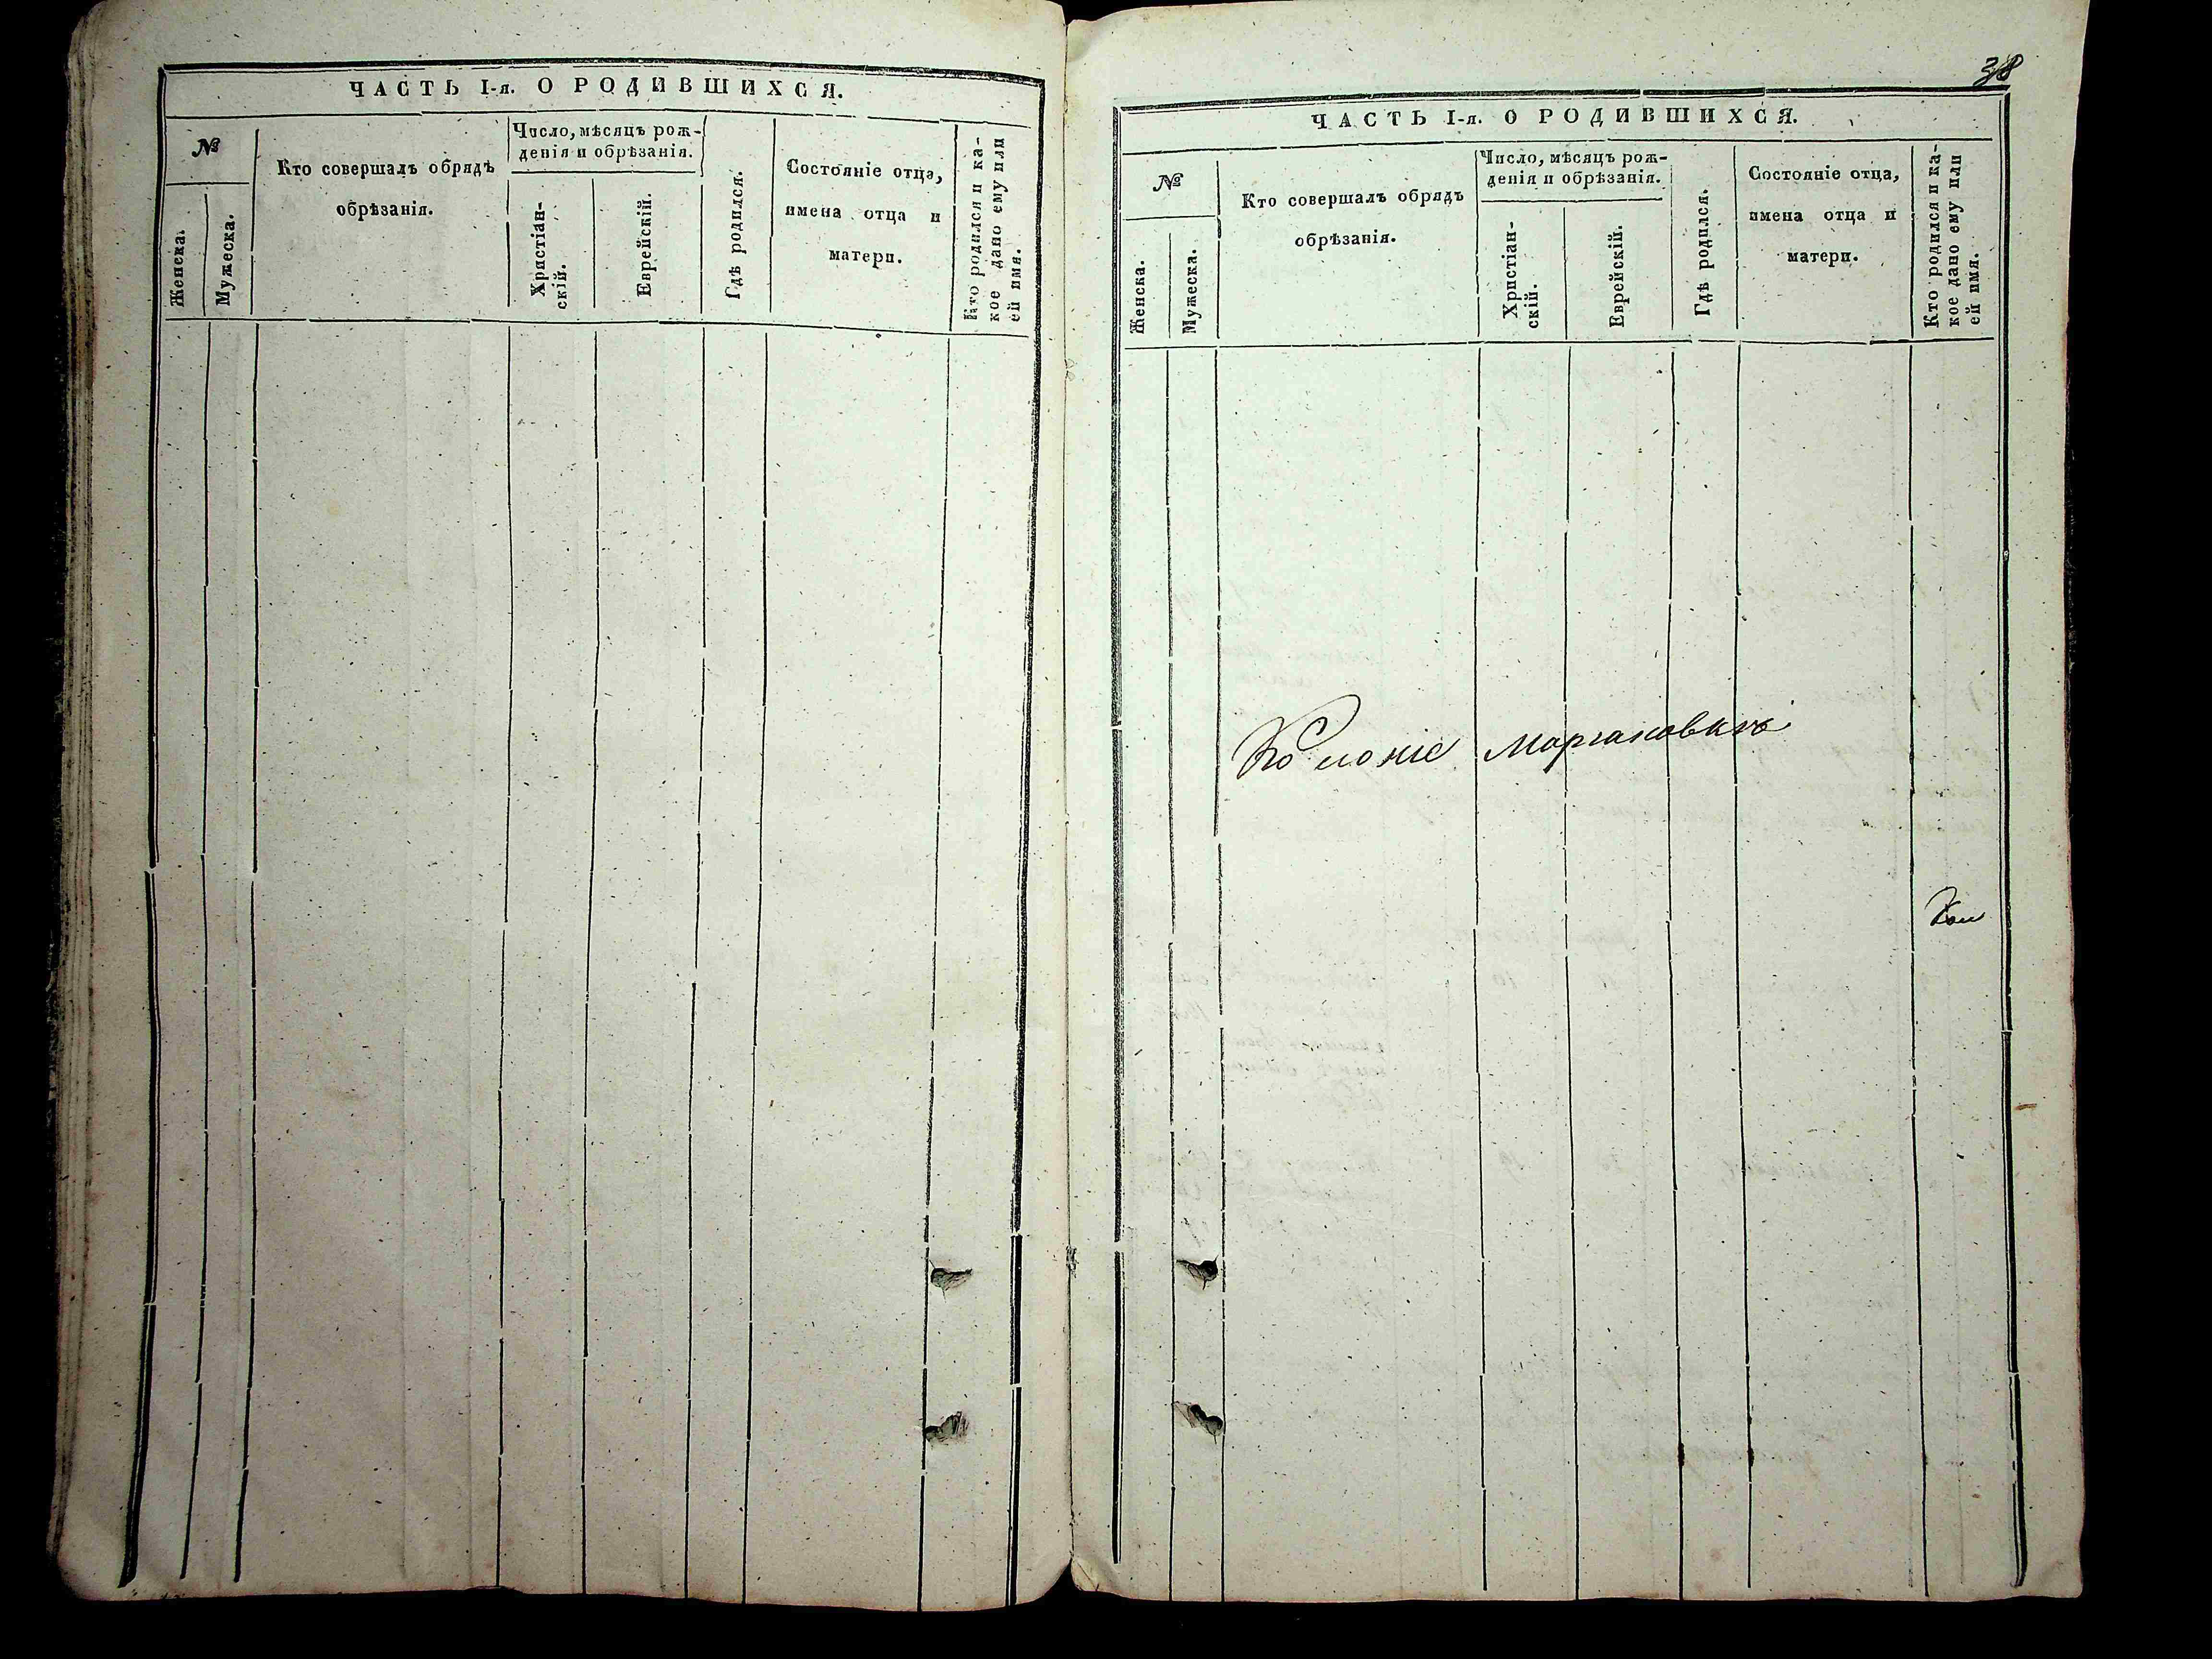 ЧАСТЬ I-я. О РОДИВШИХСЯ.
№
Женска.
Мужеска.
Кто совершалъ обрядъ
обрѣзанія.
Число, мѣсяцъ рож-
денія и обрѣзанія.
Христіан-
скій.
Еврейскій.
Гдѣ родился.
Состояніе отца,
имена отца и
матери.
Кто родился и ка-
кое дано ему или
ей имя.
38
ЧАСТЬ I-я. О РОДИВШИХСЯ.
№
Женска.
Мужеска.
Кто совершалъ обрядъ
обрѣзанія.
Число, мѣсяцъ рож-
денія и обрѣзанія.
Христіан-
скій.
Еврейскій.
Гдѣ родился.
Состояніе отца,
имена отца и
матери.
Кто родился и ка-
кое дано ему или
ей имя.